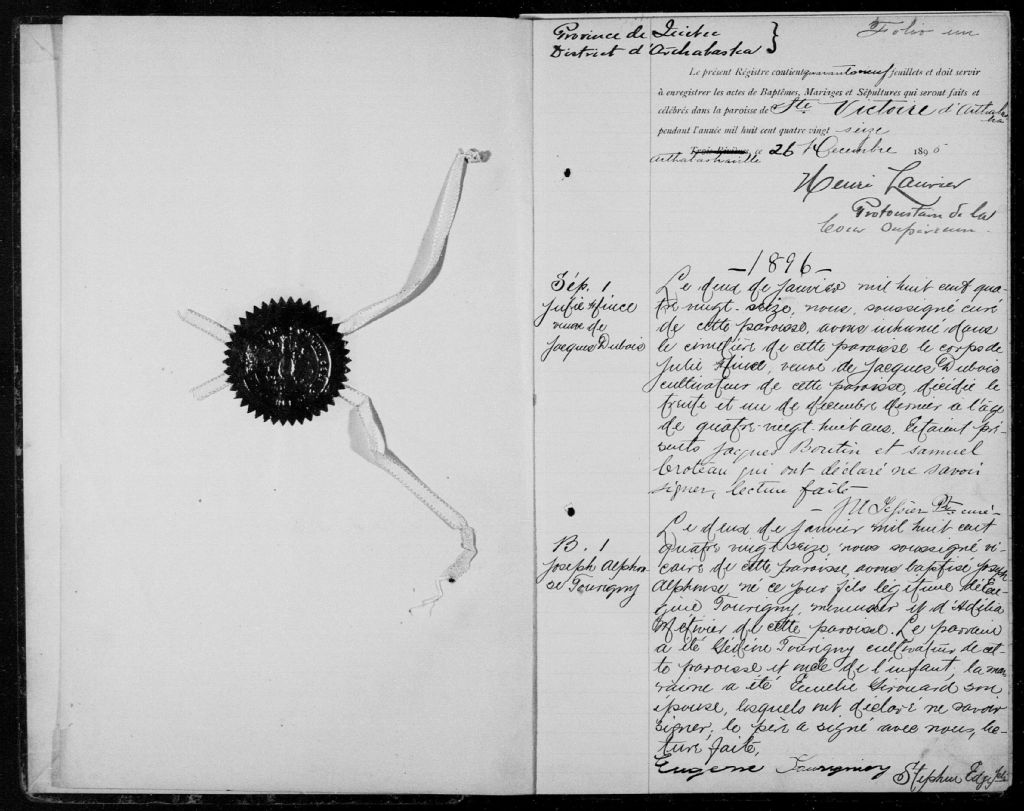 Province de Québec
District d'Arthabaska }
Folio un
Le présent Régistre contient quarante neuf feuillets et doit servir
à enregistrer les actes de Baptêmes, Mariages et Sépultures qui seront faits et
célébrés dans la paroisse de Ste Victoire d'Arthabaska
pendant l'année mil huit cent quatre vingt seize
Trois-Rivières, ce 26 Décembre 1895
Arthabaskaville
Henri Laurier
Protonotaire de la
Cour Supérieure
- 1896 -
Sép. 1
Julie
veuve de
Jacques Dubois
Le deux de janvier mil huit cent qua-
tre-vingt-seize, nous, soussigné curé
de cette paroisse, avons inhumé dans
le cimetière de cette paroisse le corps de
Julie, veuve de Jacques Dubois
cultivateur de cette paroisse, décédée le
trente et un de décembre dernier à l'âge
de quatre-vingt-huit ans. Etaient pré-
sents Jacques Boutin et Samuel
Croteau qui ont déclaré ne savoir
signer, lecture faite
Tessier Ptre curé
B. 1
Joseph Alphon
se Tourigny
Le deux de janvier mil huit cent
quatre vingt seize, nous soussigné vi-
caire de cette paroisse, avons baptisé Joseph
Alphonse, né ce jour fils légitime d'Eu-
gène Tourigny, menuisier et d'Adélia
Métivier de cette paroisse. Le parrain
a été Gédéon Tourigny cultivateur de cet-
te paroisse et oncle de l'enfant, la mar-
raine a été Emélie Girouard son
épouse, lesquels ont déclaré ne savoir
signer, le père a signé avec nous, lec-
ture faite,
Eugène Tourigny Stephen Ptre